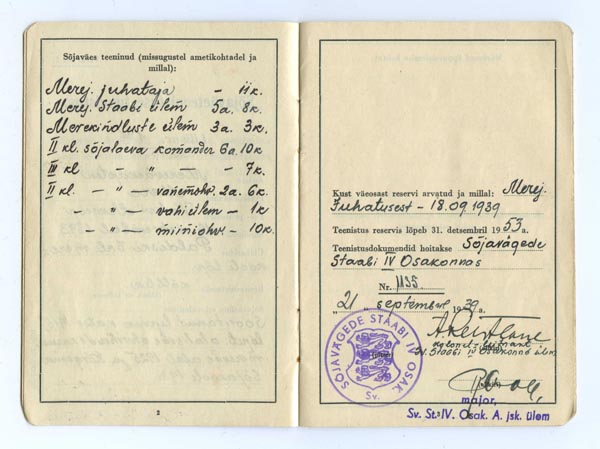 Sõjaväes teeninud (missugustel ametikohtadel ja
millal):
Merej. juhataja – 11 k.
Merej. Staabi ülem 5 a. 8 k.
Merekindluste ülem 3 a. 3 k.
II kl. sõjalaeva komander 6 a. 10 k
III kl – " – – 7 k.
II kl. – " – vanemohv. 2 a. 6 k.
– " – vahiülem – 1 k
– " – miiniohv. – 10 k.
2
Kust väeosast reservi arvatud ja millal: Merej.
Juhatusest – 18.09.1939
Teenistus reservis lõpeb 31. detsembril 1953 a.
Teenistusdokumendid hoitakse Sõjavägede
Staabi IV Osakonnas
Nr. 1135.
"21" septembril 1939 a.
SÕJAVÄGEDE STAABI IV OSAK.
Sv.
kolonel-leitnant
Sv. Staabi IV Osakonna ülem
major,
Sv. St. IV. Osak. A. jsk. ülem